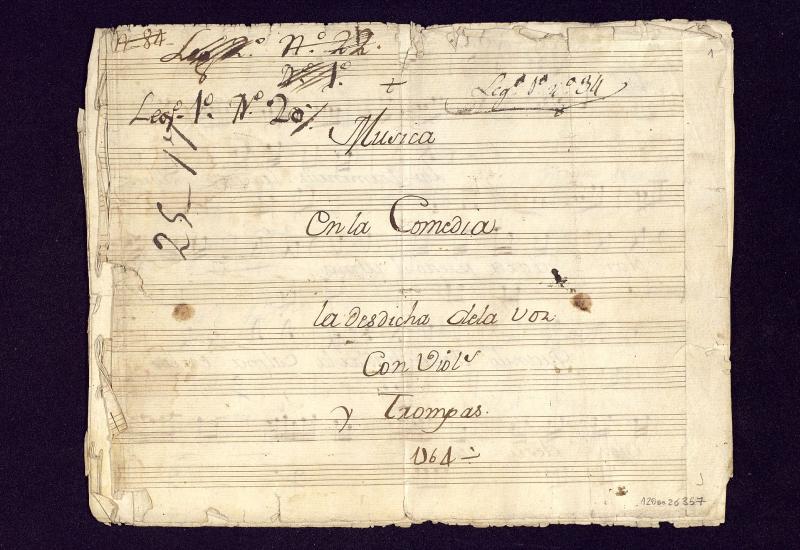 N. 84
Legº 2º. Nº. 22.
Nº. 1º.
+
Legº. 1º. nº 34
Legº. 1º. Nº. 20%
1
Musica
25_17
En la Comedia
la desdicha dela voz
Con Viols
y Trompas.
1764